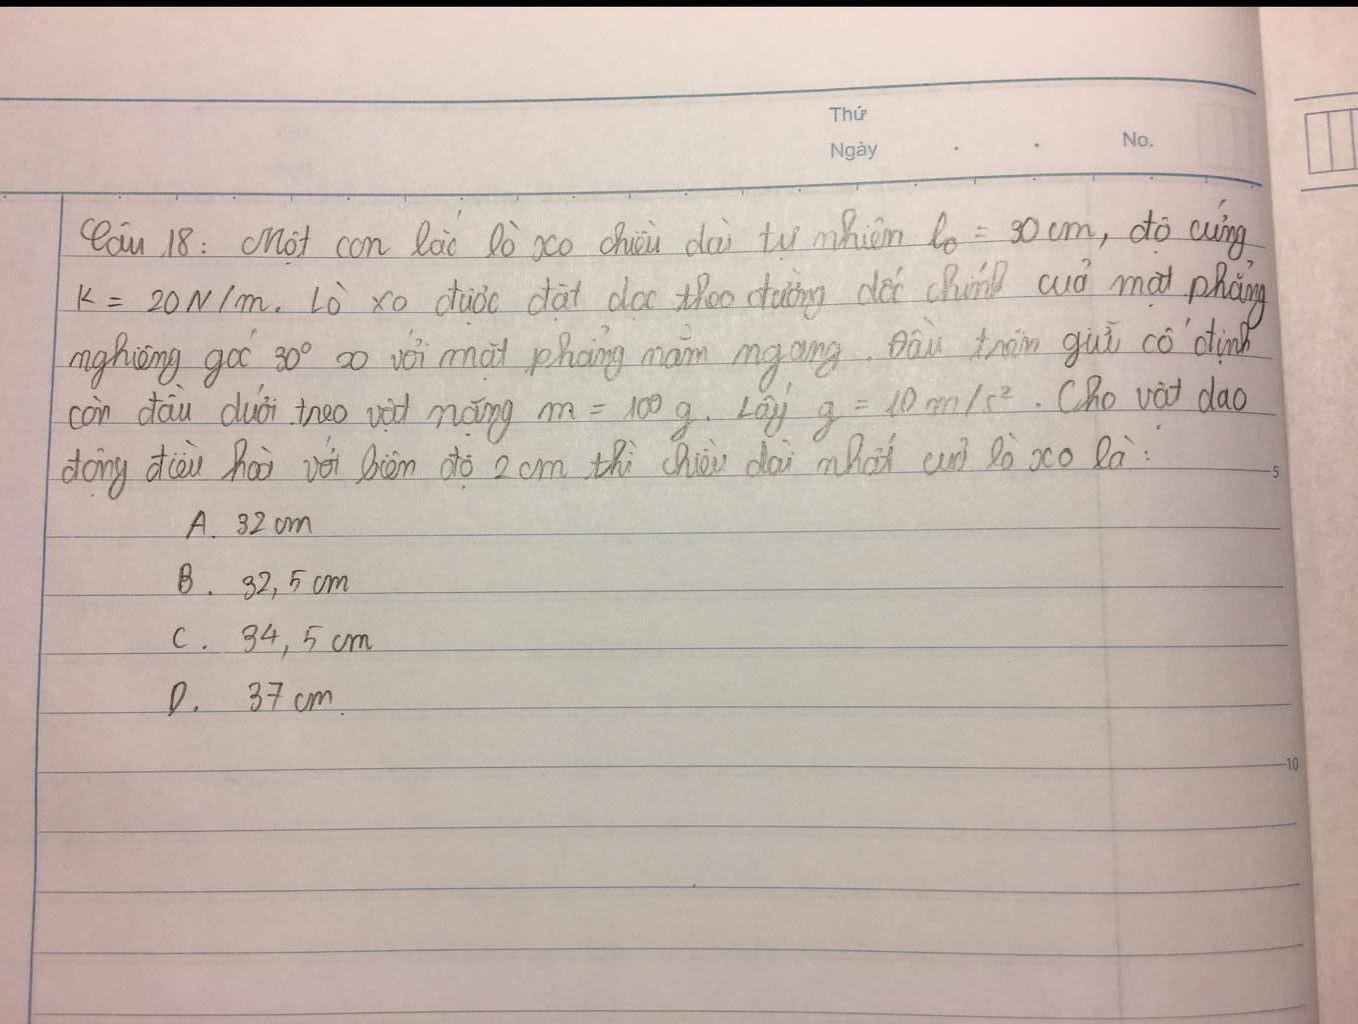 Thứ
Ngày
No.
Câu 18: Một con lắc lò xo chiều dài tự nhiên l₀ = 30 cm, độ cứng
K = 20 N/m. Lò xo được đặt dọc theo đường dốc chính của mặt phẳng
nghiêng góc 30° so với mặt phẳng nằm ngang. Đầu trên giữ cố định
còn đầu dưới treo vật nặng m = 100 g. Lấy g = 10 m/s². Cho vật dao
động điều hoà với biên độ 2 cm thì chiều dài nhất của lò xo là:
5
A. 32 cm
B. 32,5 cm
C. 34,5 cm
D. 37 cm.
10